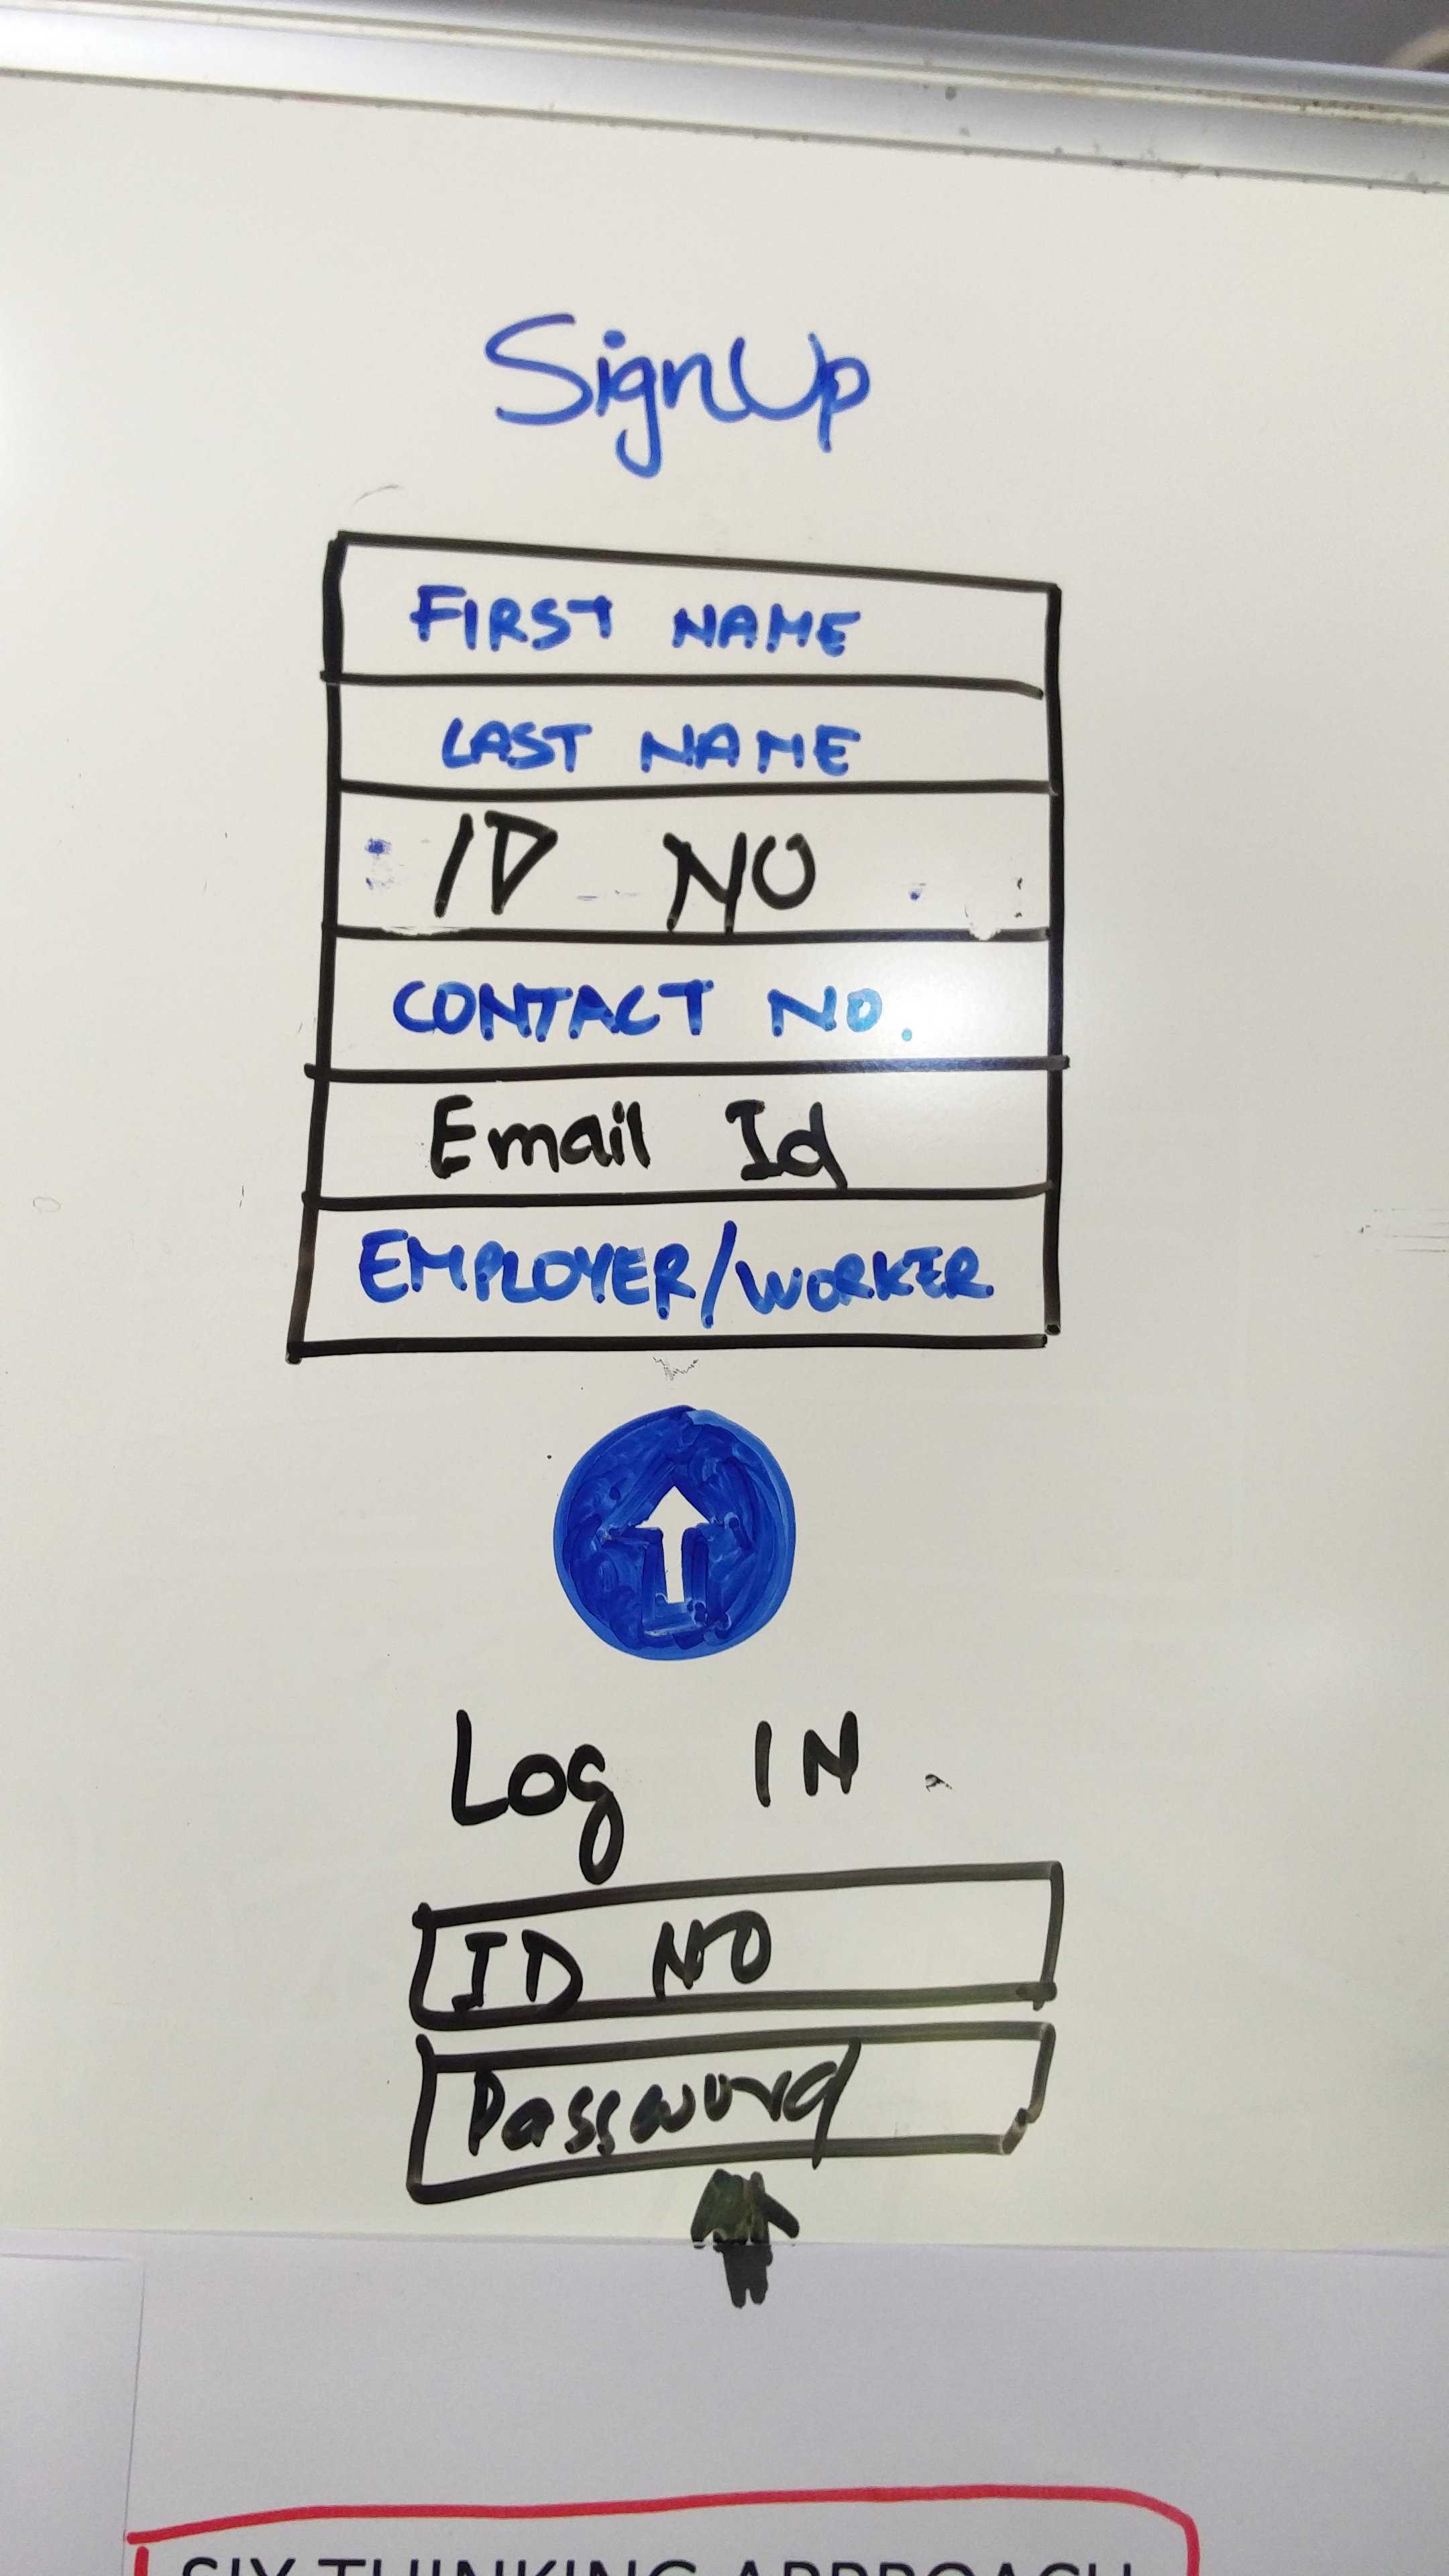 SignUp
FIRST NAME
LAST NAME
ID NO
CONTACT NO.
Email Id
EMPLOYER/WORKER
Log IN
ID NO
Password
SIX THINKING APPROACH